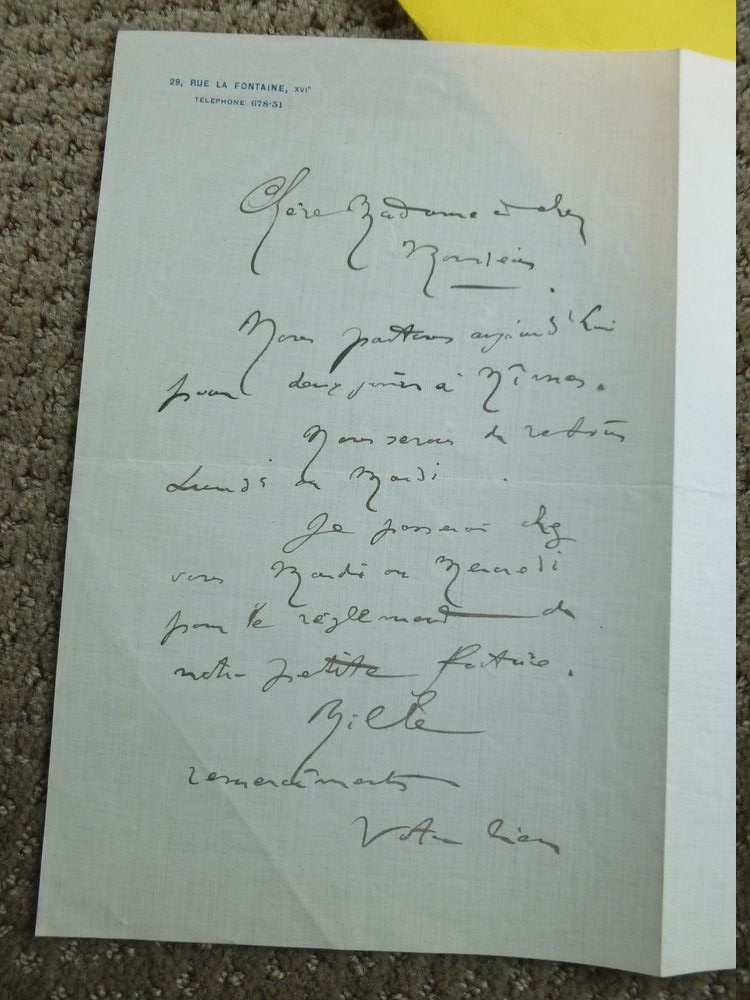 29, RUE LA FONTAINE, XVIᵉ
TÉLÉPHONE 678-51
Chère Madame et cher
Monsieur.
Nous partons aujourd'hui
pour deux jours à Nîmes.
Nous serons de retour
Lundi ou Mardi.
Je passerai chez
vous Mardi ou Mercredi
pour le règlement de
notre petite facture.
Mille
remerciments
Votre bien